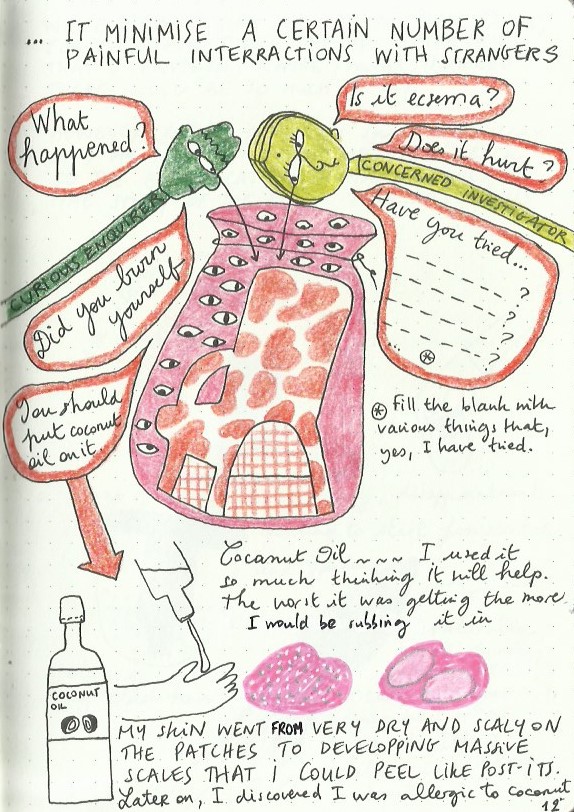 ... IT MINIMISE A CERTAIN NUMBER OF
PAINFUL INTERRACTIONS WITH STRANGERS
What
happened?
Is it eczema?
Does it hurt?
CURIOUS ENQUIRER
CONCERNED INVESTIGATOR
Did you burn
yourself
Have you tried...
?
?
?
?
... ⊛
You should
put coconut
oil on it.
⊛ Fill the blank with
various things that,
yes, I have tried.
Cocanut Oil ~~~ I used it
so much thinking it will help.
The worst it was getting the more
I would be rubbing it in
COCONUT
OIL
MY SKIN WENT FROM VERY DRY AND SCALY ON
THE PATCHES TO DEVELOPPING MASSIVE
SCALES THAT I COULD PEEL LIKE POST-ITS.
Later on, I discovered I was allergic to coconut
12